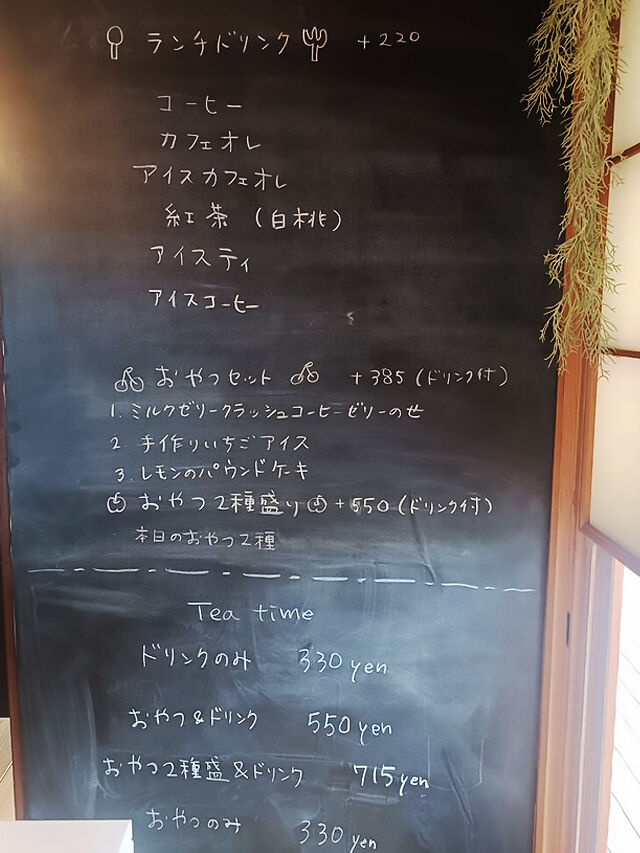 ランチドリンク +220
コーヒー
カフェオレ
アイスカフェオレ
紅茶 (白桃)
アイスティ
アイスコーヒー
おやつセット +385 (ドリンク付)
1. ミルクゼリークラッシュコーヒーゼリーのせ
2. 手作りいちごアイス
3. レモンのパウンドケーキ
おやつ2種盛り +550 (ドリンク付)
本日のおやつ2種
Tea time
ドリンクのみ 330 yen
おやつ&ドリンク 550 yen
おやつ2種盛&ドリンク 715 yen
おやつのみ 330 yen